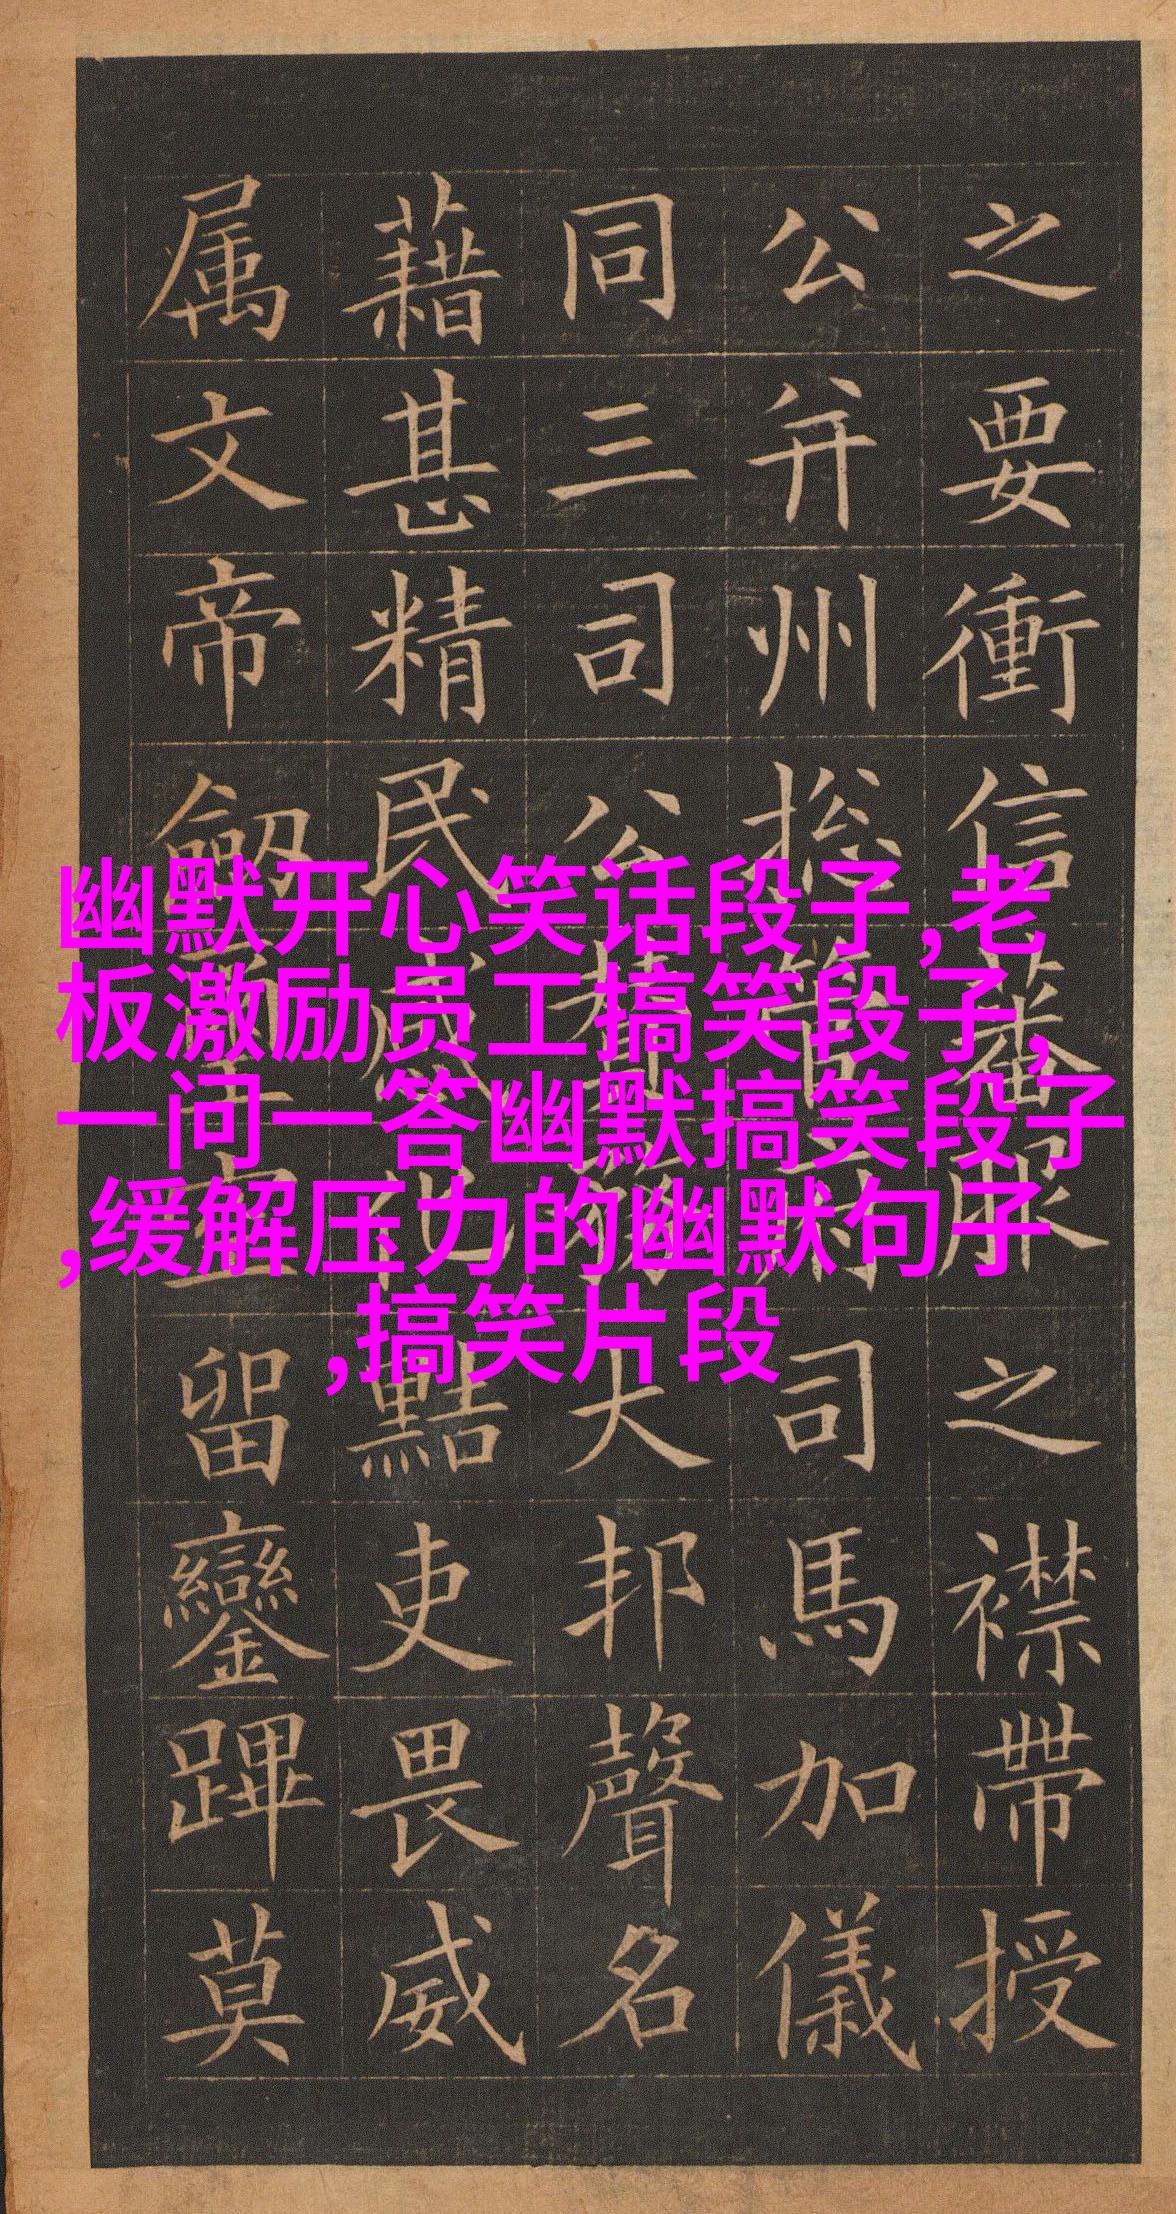 之要衝信蕃服之襟帶授
公并州揔管府司馬加儀
同三司公贊務大邦聲名
藉甚精民感化黠吏畏威
属文帝劒璽空留鑾蹕莫
幽默开心笑话段子,老
板激励员工搞笑段子,
一问一答幽默搞笑段子
,缓解压力的幽默句子
,搞笑片段